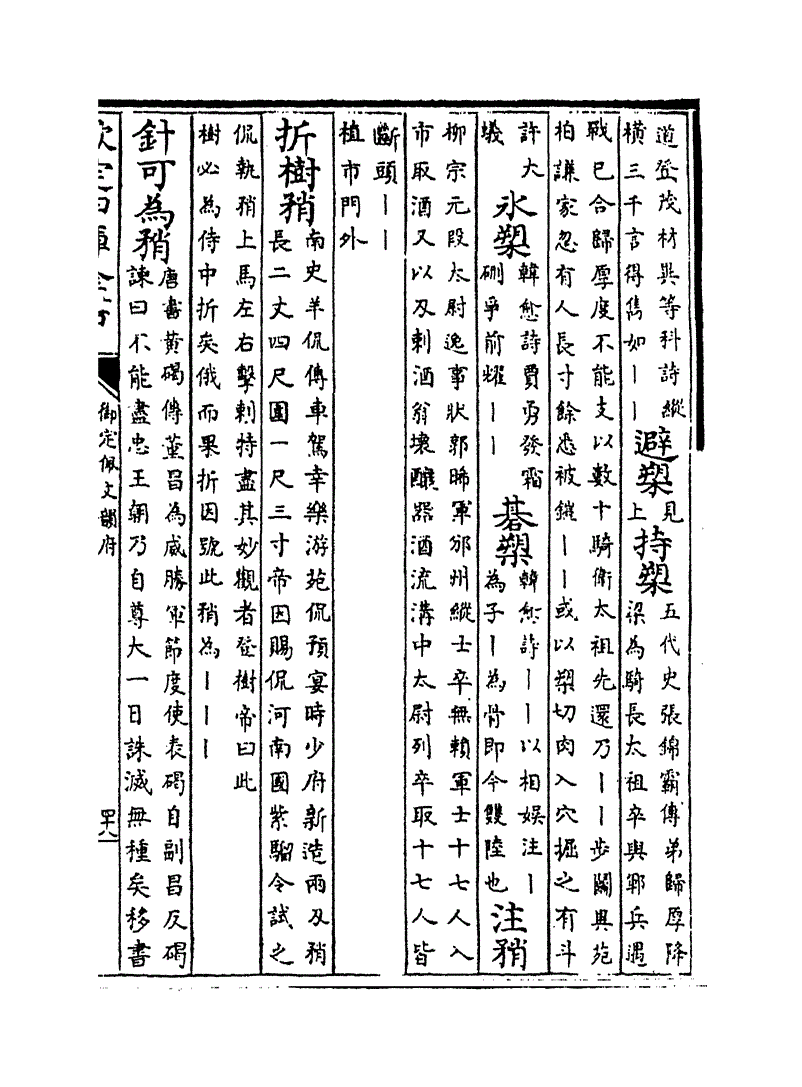 道登茂材異等科詩縱
橫三千言得雋如丨丨
避槊
見
上
持槊
五代史張錦霸傳弟歸厚降
梁為騎長太祖卒與鄆兵遇
戰已合歸厚度不能支以數十騎衛太祖先還乃丨丨步鬭與苑
柏謙家忽有人長寸餘悉被鎧丨丨或以槊切肉入穴掘之有斗
許大
蟻
氷槊
韓愈詩賈勇發霜
硎爭前耀丨丨
碁槊
韓愈詩丨丨以相娛注丨
為子丨為骨即今雙陸也
注矟
柳宗元段太尉逸事狀郭晞軍邠州縱士卒無賴軍士十七人入
市取酒又以刃刺酒翁壞釀器酒流溝中太尉列卒取十七人皆
斷頭丨丨
植市門外
折樹矟
南史羊侃傳車駕幸樂游苑侃預宴時少府新造兩刃矟
長二丈四尺圍一尺三寸帝因賜侃河南國紫騮令試之
侃執矟上馬左右擊刺特盡其妙觀者登樹帝曰此
樹必為侍中折矣俄而果折因號此矟為丨丨丨
針可為矟
唐書黃碣傳董昌為威勝軍節度使表碣自副昌反碣
諫曰不能盡忠王朝乃自尊大一日誅滅無種矣移書
欽定四庫全書
御定佩文韻府
四十八